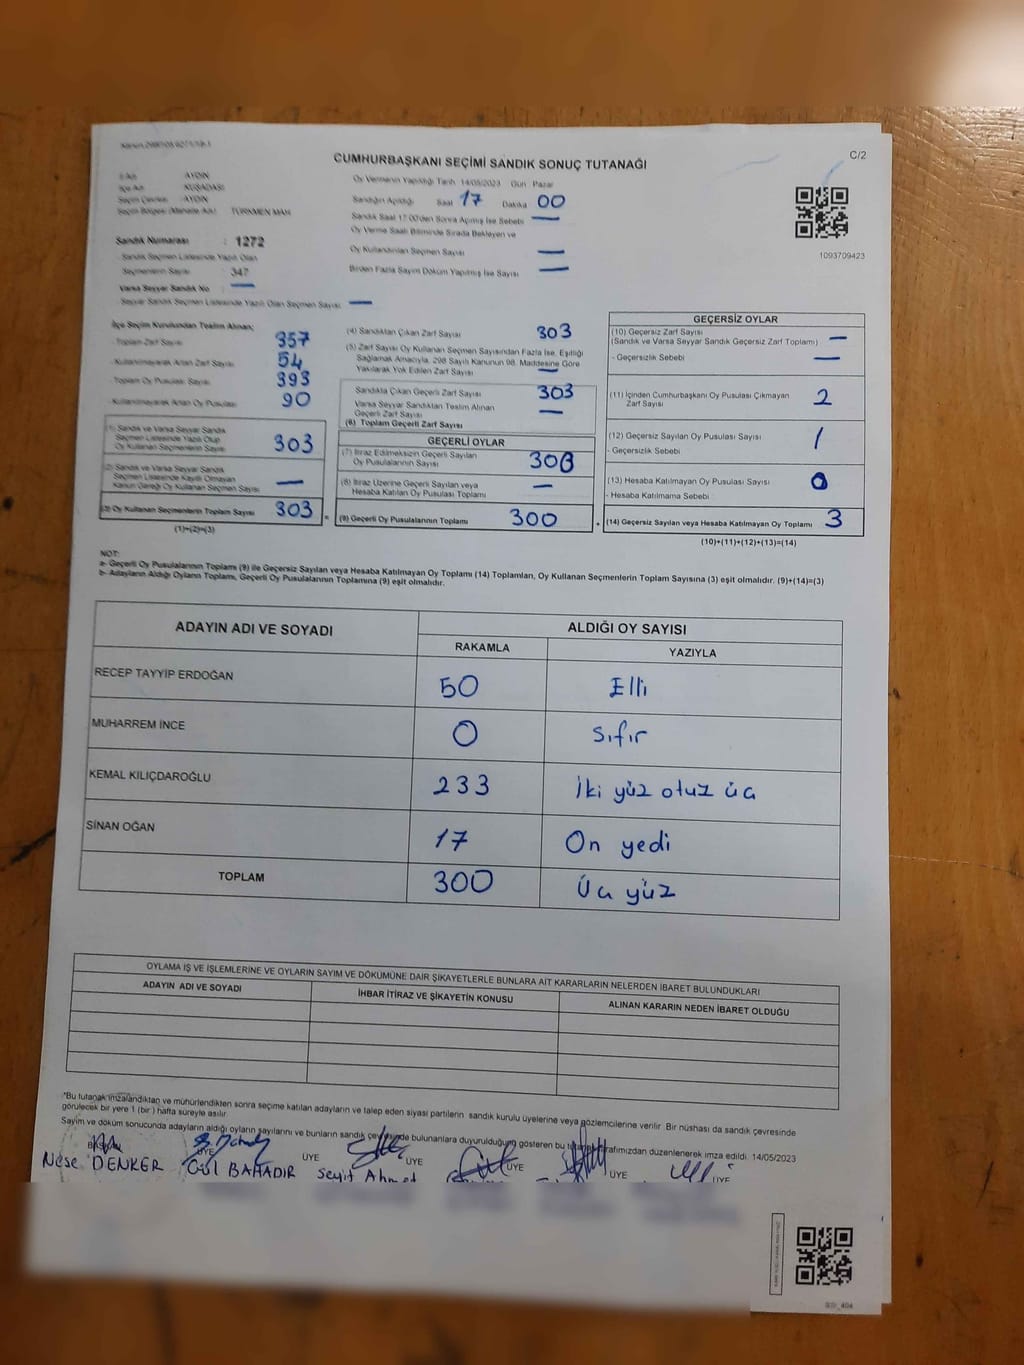 CUMHURBAŞKANI SEÇİMİ SANDIK SONUÇ TUTANAĞI
C/2
İl Adı AYDIN
İlçe Adı KUŞADASI
Seçim Çevresi AYDIN
Seçim Bölgesi (Mahalle Adı) TÜRKMEN MAH.
Sandık Numarası : 1272
Sandık Seçmen Listesinde Yazılı Olan
Seçmenlerin Sayısı 347
Varsa Seyyar Sandık No —
Seyyar Sandık Seçmen Listesinde Yazılı Olan Seçmen Sayısı —
Oy Vermenin Yapıldığı Tarih 14/05/2023 Gün Pazar
Sandığın Açıldığı Saat 17 Dakika 00
Sandık Saat 17:00'den Sonra Açılmış İse Sebebi —
Oy Verme Saati Bitiminde Sırada Bekleyen ve
Oy Kullandırılan Seçmen Sayısı —
Birden Fazla Sayım Döküm Yapılmış İse Sayısı —
1093709423
İlçe Seçim Kurulundan Teslim Alınan;
- Toplam Zarf Sayısı 357
- Kullanılmayarak Artan Zarf Sayısı 54
- Toplam Oy Pusulası Sayısı 393
- Kullanılmayarak Artan Oy Pusulası 90
(1) Sandık ve Varsa Seyyar Sandık
Seçmen Listesinde Yazılı Olup
Oy Kullanan Seçmenlerin Sayısı 303
(2) Sandık ve Varsa Seyyar Sandık
Seçmen Listesinde Kayıtlı Olmayan
Kanun Gereği Oy Kullanan Seçmen Sayısı —
(3) Oy Kullanan Seçmenlerin Toplam Sayısı 303
(1)+(2)=(3)
(4) Sandıktan Çıkan Zarf Sayısı 303
(5) Zarf Sayısı Oy Kullanan Seçmen Sayısından Fazla İse, Eşitliği
Sağlamak Amacıyla, 298 Sayılı Kanunun 98. Maddesine Göre
Yakılarak Yok Edilen Zarf Sayısı —
Sandıkta Çıkan Geçerli Zarf Sayısı 303
Varsa Seyyar Sandıktan Teslim Alınan
Geçerli Zarf Sayısı —
(6) Toplam Geçerli Zarf Sayısı
GEÇERLİ OYLAR
(7) İtiraz Edilmeksizin Geçerli Sayılan
Oy Pusulalarının Sayısı 300
(8) İtiraz Üzerine Geçerli Sayılan veya
Hesaba Katılan Oy Pusulası Toplamı —
= (9) Geçerli Oy Pusulalarının Toplamı 300
GEÇERSİZ OYLAR
(10) Geçersiz Zarf Sayısı
(Sandık ve Varsa Seyyar Sandık Geçersiz Zarf Toplamı) —
- Geçersizlik Sebebi —
(11) İçinden Cumhurbaşkanı Oy Pusulası Çıkmayan
Zarf Sayısı 2
(12) Geçersiz Sayılan Oy Pusulası Sayısı 1
- Geçersizlik Sebebi
(13) Hesaba Katılmayan Oy Pusulası Sayısı 0
- Hesaba Katılmama Sebebi
+ (14) Geçersiz Sayılan veya Hesaba Katılmayan Oy Toplamı 3
(10)+(11)+(12)+(13)=(14)
NOT:
a- Geçerli Oy Pusulalarının Toplamı (9) ile Geçersiz Sayılan veya Hesaba Katılmayan Oy Toplamı (14) Toplamları, Oy Kullanan Seçmenlerin Toplam Sayısına (3) eşit olmalıdır. (9)+(14)=(3)
b- Adayların Aldığı Oyların Toplamı, Geçerli Oy Pusulalarının Toplamına (9) eşit olmalıdır.
ADAYIN ADI VE SOYADI ALDIĞI OY SAYISI
RAKAMLA YAZIYLA
RECEP TAYYİP ERDOĞAN 50 Elli
MUHARREM İNCE 0 Sıfır
KEMAL KILIÇDAROĞLU 233 İki yüz otuz üç
SİNAN OĞAN 17 On yedi
TOPLAM 300 Üç yüz
OYLAMA İŞ VE İŞLEMLERİNE VE OYLARIN SAYIM VE DÖKÜMÜNE DAİR ŞİKAYETLERLE BUNLARA AİT KARARLARIN NELERDEN İBARET BULUNDUKLARI
ADAYIN ADI VE SOYADI İHBAR İTİRAZ VE ŞİKAYETİN KONUSU ALINAN KARARIN NEDEN İBARET OLDUĞU
*Bu tutanak imzalandıktan ve mühürlendikten sonra seçime katılan adayların ve talep eden siyasi partilerin sandık kurulu üyelerine veya gözlemcilerine verilir. Bir nüshası da sandık çevresinde
görülecek bir yere 1 (bir) hafta süreyle asılır.
Sayım ve döküm sonucunda adayların aldığı oyların sayılarını ve bunların sandık çevresinde bulunanlara duyurulduğunu gösteren bu tutanak tarafımızdan düzenlenerek imza edildi. 14/05/2023
BAŞKAN ÜYE ÜYE ÜYE ÜYE ÜYE ÜYE
Neşe DENKER Gül BAHADIR Seyit Ahmet